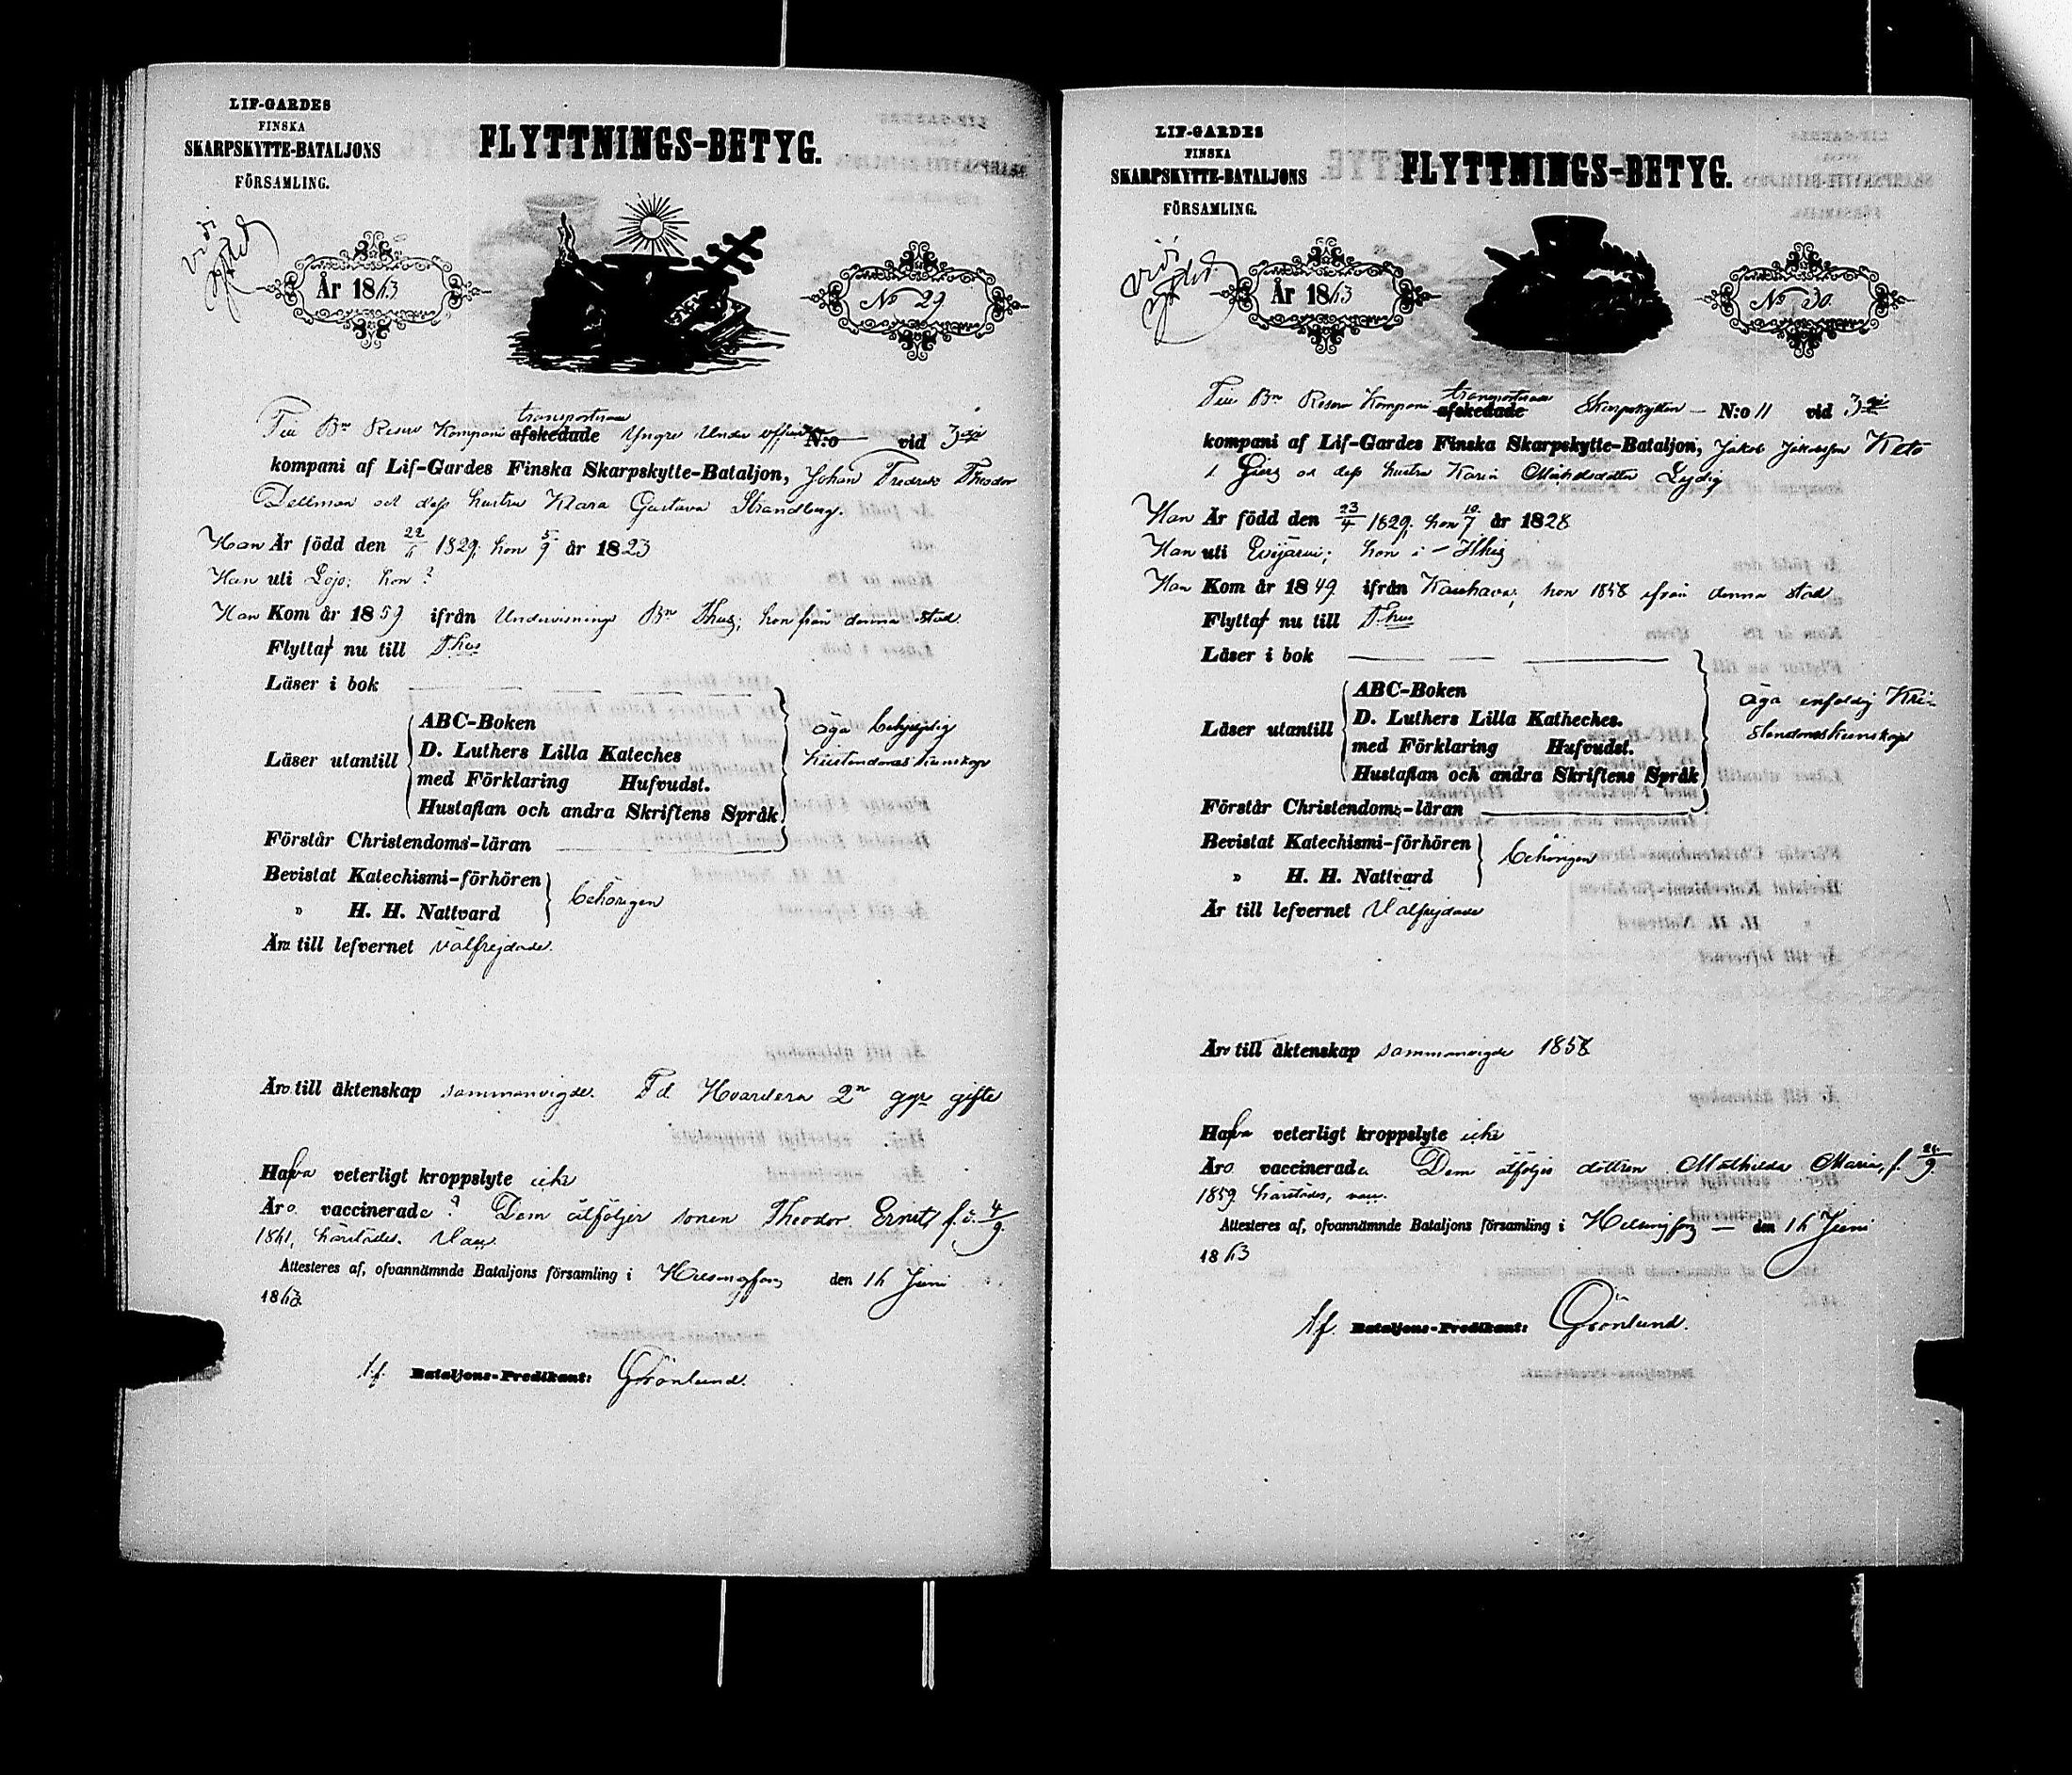 LIF-GARDES
FINSKA
SKARPSKYTTE-BATALJONS
FÖRSAMLING.
FLYTTNINGS-BETYG.
År 1863
No 29.
transporterade
Till Bns Reserv Kompani afskedade Yngre Under officer N:o vid 3dje
kompani af Lif-Gardes Finska Skarpskytte-Bataljon, Johan Fredrik Theodor
Dellman och dess hustru Klara Gustava Strandberg.
Han Är född den 22/11 1829; hon 5/9 år 1823
Han uti Lojo; hon ?
Han Kom år 1859 ifrån Undervisnings Bn Thus; hon från denna stad
Flytta nu till Thus
Läser i bok
ABC-Boken
D. Luthers Lilla Kateches
Läser utantill
med Förklaring Hufvudst.
Hustaflan och andra Skriftens Språk
äga behjelplig
kristendomskunskap
Förstår Christendoms-läran
Bevistat Katechismi-förhören
" H. H. Nattvard
behörigen
Äro till lefvernet välfrejdade.
Äro till äktenskap sammanvigde. Fd Hvardera 2n ggr gifte
Hafva veterligt kroppslyte icke
Äro vaccinerade ? Dem åtföljer sonen Theodor Ernst, f. d. 4/9
1861, härstädes. Vac.
Attesteres af, ofvannämnde Bataljons församling i Helsingfors den 16 Juni
1863.
t.f. Bataljons-Predikant: Grönlund.
LIF-GARDES
FINSKA
SKARPSKYTTE-BATALJONS
FÖRSAMLING.
FLYTTNINGS-BETYG.
År 1863
No 30.
transporterade
Till Bns Reserv Kompani afskedade Skarpskytten N:o 11 vid 3dje
kompani af Lif-Gardes Finska Skarpskytte-Bataljon, Jakob Jakobsson Keto
och dess hustru Karin Michelsdotter Lydig
Han Är född den 23/4 1829; hon 10/7 år 1828
Han uti Evijärvi; hon i
Han Kom år 1849 ifrån Kauhava; hon 1858 ifrån denna stad
Flytta nu till Thus
Läser i bok
ABC-Boken
D. Luthers Lilla Katheches.
Läser utantill
med Förklaring Hufvudst.
Hustaflan och andra Skriftens Språk
äga enfaldig Kri-
stendomskunskap
Förstår Christendoms-läran
Bevistat Katechismi-förhören
" H. H. Nattvard
behörigen
Är till lefvernet Välfrejdade
Äro till äktenskap sammanvigde 1858
Hafva veterligt kroppslyte icke
Äro vaccinerade. Dem åtföljer dottren Mathilda Maria, f. 24/9
1859 härstädes, vac.
Attesteres af, ofvannämnde Bataljons församling i Helsingfors den 16 Juni
1863
t.f. Bataljons-Predikant: Grönlund.